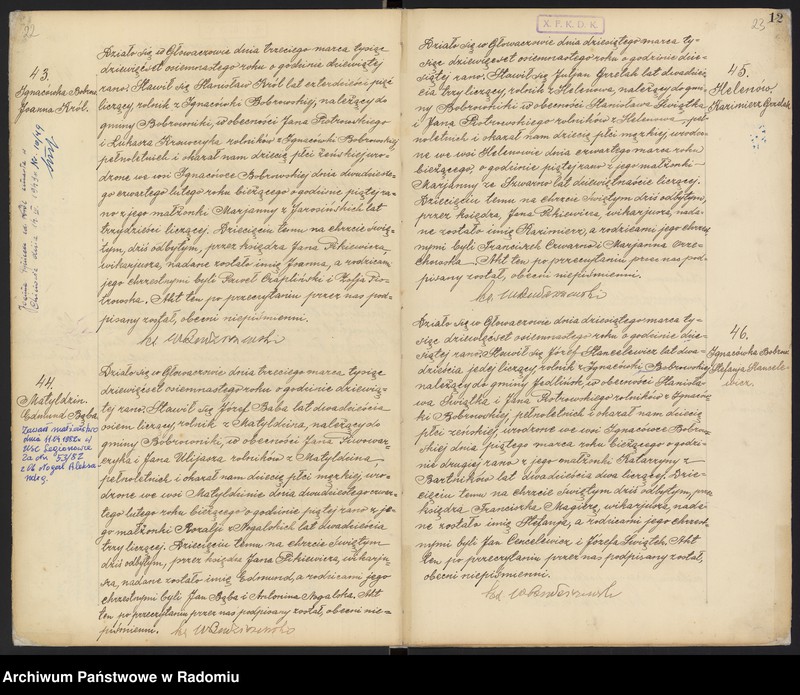 22
43.
Ignacówka Bobrow.
Joanna Król.
Działo się w Głowaczowie dnia trzeciego marca tysiąc
dziewięćset osiemnastego roku o godzinie dziewiątej
rano. Stawił się Stanisław Król lat czterdzieści pięć
liczący, rolnik z Ignacówki Bobrowskiej, należący do
gminy Bobrowniki, w obecności Jana Piotrowskiego
i Łukasza Krawczyka rolników z Ignacówki Bobrowskiej
pełnoletnich i okazał nam dziecię płci żeńskiej, uro-
dzone we wsi Ignacówce Bobrowskiej dnia dwudzieste-
go czwartego lutego roku bieżącego o godzinie piątej ra-
no z jego małżonki Marjanny z Jarosińskich lat
trzydzieści liczącej. Dziecięciu temu na chrzcie Świę-
tym, dziś odbytym, przez księdza, Jana Pikiewicza,
wikarjusza, nadane zostało imię Joanna, a rodzicami
jego chrzestnymi byli Paweł Czapliński i Zofja Pio-
trowska. Akt ten po przeczytaniu przez nas pod-
pisany został, obecni niepiśmienni.
44.
Matyldzin.
Edmund Bąba.
Zawarł małżeństwo
dnia 11.04 1952 w
USC Legionowie
Za Nr 53/52
z Nogal Aleksa-
ndrą.
Działo się w Głowaczowie dnia trzeciego marca tysiąc
dziewięćset osiemnastego roku o godzinie dziewią-
tej rano. Stawił się Józef Bąba lat dwadzieścia
osiem liczący, rolnik z Matyldzina, należący do
gminy Bobrowniki, w obecności Jana
i Jana rolników z Matyldzina,
pełnoletnich i okazał nam dziecię płci męzkiej, uro-
dzone we wsi Matyldzinie dnia dwudziestego czwar-
tego lutego roku bieżącego o godzinie piątej rano z je-
go małżonki Rozalji z Nogalskich lat dwadzieścia
trzy liczącej. Dziecięciu temu na chrzcie Świętym
dziś odbytym, przez księdza Jana Pikiewicza, wikarju-
sza, nadane zostało imię Edmund, a rodzicami jego
chrzestnymi byli Jan Bąba i Antonina Nogalska. Akt
ten po przeczytaniu przez nas podpisany został, obecni nie-
piśmienni.
X. P. K. D. K.
23
12
45.
Helenów.
Kazimierz Grzelak
Działo się w Głowaczowie dnia dziesiątego marca ty-
siąc dziewięćset osiemnastego roku o godzinie dzie-
siątej rano. Stawił się Juljan Grzelak lat dwadzieś-
cia trzy liczący, rolnik z Helenowa, należący do gmi-
ny Bobrowniki w obecności Stanisława Świątka
i Jana Piotrowskiego rolników z Helenowa, peł-
noletnich i okazał nam dziecię płci męzkiej, urodzo-
ne we wsi Helenowie dnia czwartego marca roku
bieżącego, o godzinie piątej rano z jego małżonki
Marjanny ze Szwarno lat dziewiętnaście liczącej.
Dziecięciu temu na chrzcie Świętym dziś odbytym,
przez księdza, Jana Pikiewicza, wikarjusza, nada-
ne zostało imię Kazimierz, a rodzicami jego chrzest-
nymi byli Franciszek Czwarno i Marjanna Orze-
chowska. Akt ten po przeczytaniu przez nas pod-
pisany został, obecni niepiśmienni.
46.
Ignacówka Bobrow.
Stefanja Stancele-
wicz.
Działo się w Głowaczowie dnia dziesiątego marca ty-
siąc dziewięćset osiemnastego roku o godzinie dzie-
siątej rano. Stawił się Józef Stancelewicz lat dwa-
dzieścia jeden liczący, rolnik z Ignacówki Bobrowskiej
należący do gminy Jedlińsk, w obecności Stanisła-
wa Świątka i Jana Piotrowskiego rolników z Ignaców-
ki Bobrowskiej, pełnoletnich i okazał nam dziecię
płci żeńskiej, urodzone we wsi Ignacówce Bobrow-
skiej dnia piątego marca roku bieżącego o godzi-
nie drugiej rano z jego małżonki Katarzyny z
Bartników lat dwadzieścia dwa liczącej. Dzie-
cięciu temu na chrzcie Świętym dziś odbytym, przez
księdza Franciszka Magierę, wikarjusza, nada-
ne zostało imię Stefanja, a rodzicami jego chrzest-
nymi byli Jan Cencelewicz i Józefa Świątek. Akt
ten po przeczytaniu przez nas podpisany został,
obecni niepiśmienni.
Archiwum Państwowe w Radomiu